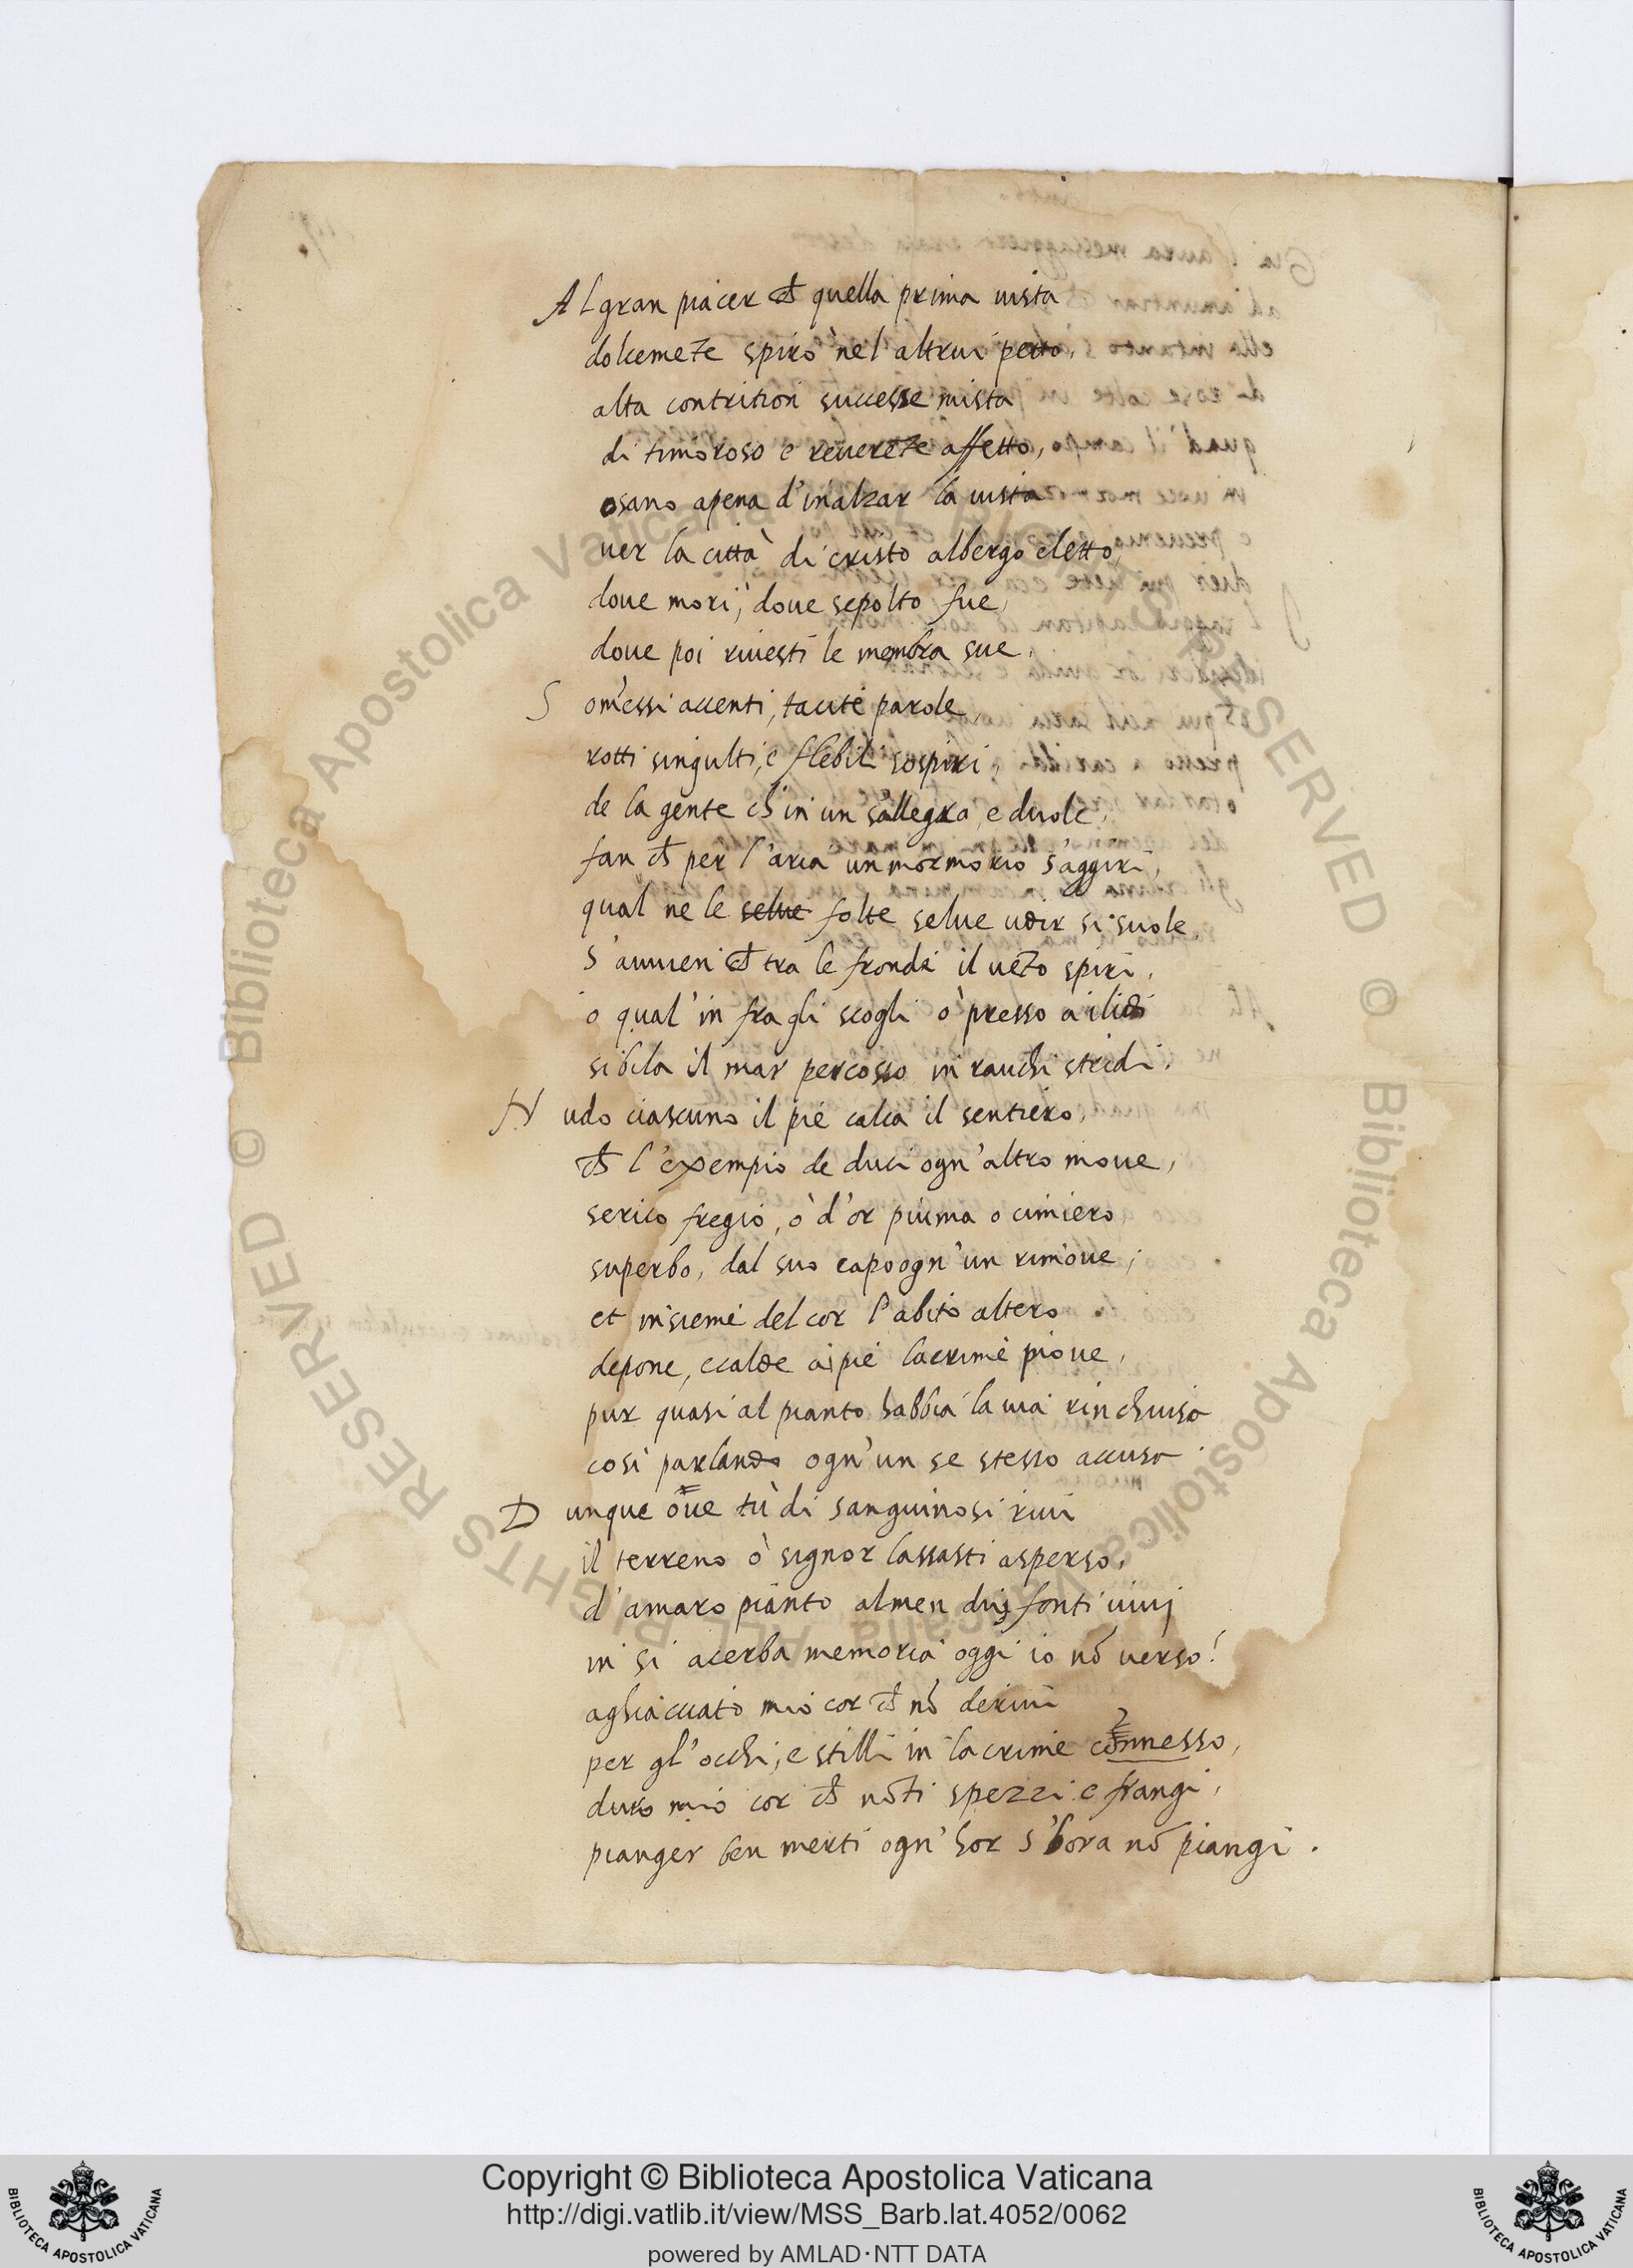 Al gran piacer ch̄ quella prima uista
dolcemēte spirò nel altrui petto,
alta contrition successe mista
di timoroso e reuerēte affetto,
osano apena d'inalzar la uista
uer la città di cristo albergo eletto,
doue mori, doue sepolto fue,
doue poi riuesti le membra sue.
Somessi accenti, tacite parole
rotti singulti, e flebili sospiri,
de la gente ch'in un s'allegra, e duole,
fan ch̄ per l'aria un mormorio s'aggiri,
qual ne le selue folte selue udir si suole
s'auuien ch̄ tra le frondi il uēto spiri,
o qual'infra gli scogli o presso a i lidi
sibila il mar percosso in rauchi stridi.
Nudo ciascuno il piè calca il sentiero,
ch̄ l'exempio de duci ogn'altro moue,
serico fregio, ò d'or piuma o cimiero
superbo, dal suo capo ogn'un rimoue;
et insieme del cor l'abito altero
depone, e calde e pie lacrime pioue,
pur quasi al pianto habbia la uia rinchiusa
così parlando ogn'un se stesso accusa.
Dunque oue tù di sanguinosi riui
il terreno ò signor lassasti asperso,
d'amaro pianto almen dui fonti uiui
in si acerba memoria oggi io nō uerso!
aghiacciato mio cor ch̄ nō deriui
per gl'occhi, e stilli in lacrime connesso,
duro mio cor ch̄ nō ti spezzi e frangi,
pianger ben merti ogn'hor s'hora nō piangi.
Copyright © Biblioteca Apostolica Vaticana
http://digi.vatlib.it/view/MSS_Barb.lat.4052/0062
powered by AMLAD·NTT DATA
BIBLIOTECA APOSTOLICA VATICANA
BIBLIOTECA APOSTOLICA VATICANA
© Biblioteca Apostolica Vaticana ALL RIGHTS RESERVED © Biblioteca Apostolica Vaticana ALL RIGHTS RESERVED